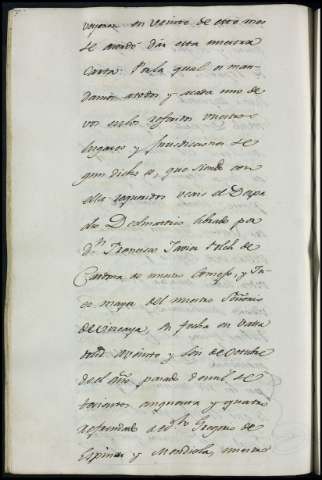 veyeron en veinte de este mes
se acordó dar esta nuestra
Carta. Por la qual os man-
damos a todos y a cada uno de
vos en los referidos vuestros
lugares y Jurisdiciones se-
gun dicho es, que siendo con
ella requeridos veais el Despa-
cho librado por
Dn. Francisco Javier de
Cardona de nuestro Consejo, y Ju-
ez mayor del nuestro Señorio
de Vizcaya, su fecha en Valla-
dolid a veinte y de Octubre
de el año pasado de mil se-
tecientos cinquenta y quatro
refrendado de Gregorio de
Espinosa y Mendiola, nuestro